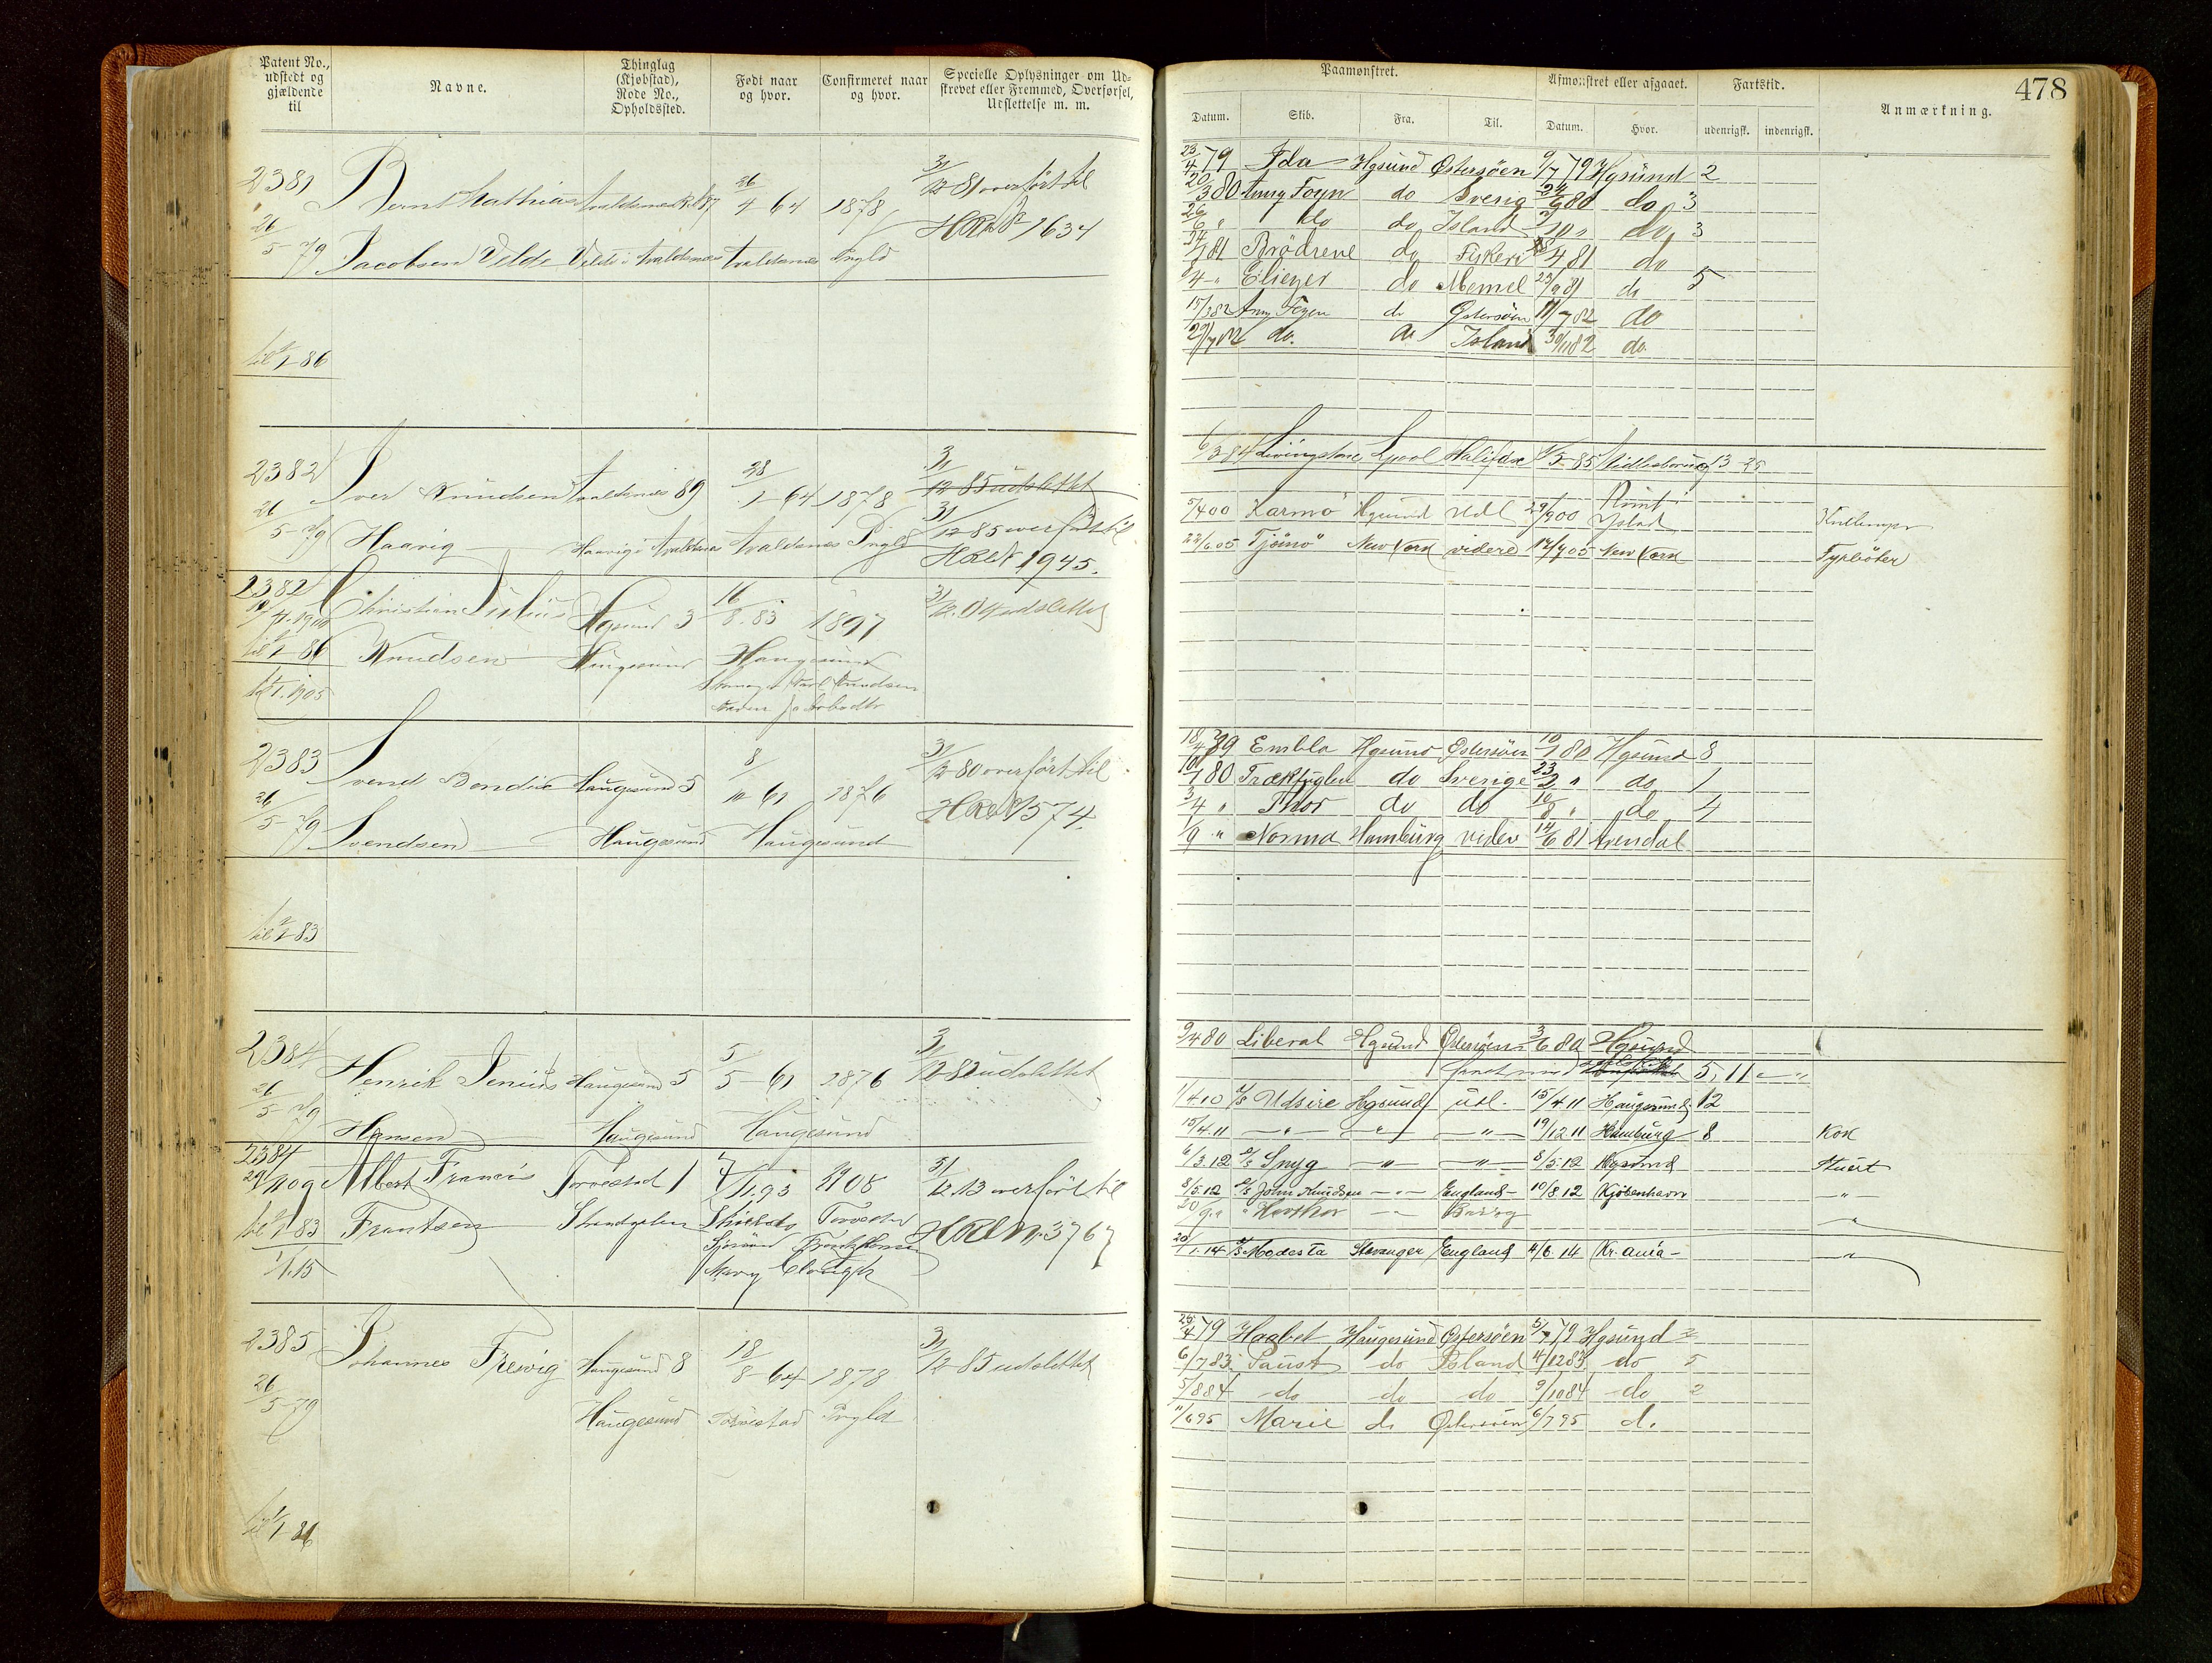 Patent No., udstedt og gjældende til
Navne.
Thinglag (Kjøbstad), Rode No., Opholdssted.
Født naar og hvor.
Confirmeret naar og hvor.
Specielle Oplysninger om Udskrevet eller Fremmed, Overførsel, Udslettelse m. m.
2381 Bernt Mathias Avaldsnes 87 26/4 64 1878 31/12 81 overført til
26/5 79 Jacobsen Velde Velde i Avaldsnes Avaldsnes HRL No 1634
til 1/1 86
2382 Iver Knudsen Avaldsnes 89 28/1 - 64 1878 31/12 85 udslettet
26/5 - 79 Haavig Haavig i Avaldsnes Avaldsnes 31/12 85 overført til
HRL No 1945.
2382 Christian Julius Hgsund 3 16/8. 83 1897 31/12. 04 udslettet
til 1/1 86 Knudsen Haugesund Haugesund
til 1/1. 1905 Knudsen
2383 Svend Bendix Haugesund 5 8/10 61 1876 31/12 80 overført til
26/5 - 79 Svendsen Haugesund Haugesund HRL No 1574.
til 1/1 83
2384 Henrik Jenius Haugesund 5 5/5 - 61 1876 31/12 82 udslettet
26/5 - 79 Hansen Haugesund Haugesund
2384
29/11 09 Albert Francis Torvestad 1 1.93 1908 31/12 13 overført til
til 1/1 83 Frantsen Torvestad HRL Nr. 3767
1/1.15 Mary
2385 Johannes Trevig Haugesund 8 18/8 - 64 1878 31/12 85 udslettet
26/5 - 79 Haugesund Torvestad
til 1/1 86
478
Paamønstret.
Afmønstret eller afgaaet.
Fartstid.
Anmærkning.
Datum. Skib. Fra. Til. Datum. Hvor. udenrigsk. indenrigsk.
23/4 79 Ida Hgsund Østersøen 9/7 79 Hgsund 2
20/3 80 Amy Foyn do Sverig 24/6 80 do 3
26/6 " do do Island 10 " do 3
81 Brødrene do Fiskeri 4 81 do
4 " Eliezer do Memel 23/9 81 do 5
15/3 82 Amy Foyn do Østersøen 11/7 82 do
29/7 82 do. do Island 30/11 82 do.
6/3 84 Livingstone Lpool Halifax 5 - 85 Midlesborough 13 - 25
Rømt
5/4 00 Karmø Hgsund Udl 29/9 00 Ystad
22/6.05 Tjømø New York videre 12/9 05 New York Fyrbøter
18/4 79 Embla Hgsund Østersøen 10/1 80 Hgsund 8
10/1 80 Trækfuglen do Sverige 23/2 " do 1
3/4 " Thor do do 10/8 " do 4
1/9 " Norma Hamburg videre 14/6 81 Arendal
9/4 80 Liberal Hgsund Østersøen 3/6 80 Hgsund
5, 11 - "
1/4.10 D/S Udsire Hgsund udl. 15/4 11 Haugesund 12
15/4.11 - " - - " - - " - 19/12 11 Hamburg 8 Kok
6/3.12 D/S Snyg - " - - " - 8/5.12 Hgsund Stuert
8/5.12 D/S John Knudsen - " - England 10/8 12 Kjøbenhavn - " -
20/9. " " Havthor - " "
20/1.14 D/S Modesta Stavanger England 4/6. 14 Kr.ania - - " -
25/4 79 Haabet Haugesund Østersøen 5/7 79 Hgsund 2
6/7 83 Paust do Island 4/12 83 do 5
5/8 84 do do do 9/10 84 do 2
11/6 95 Marie do Østersøen 6/7 95 do